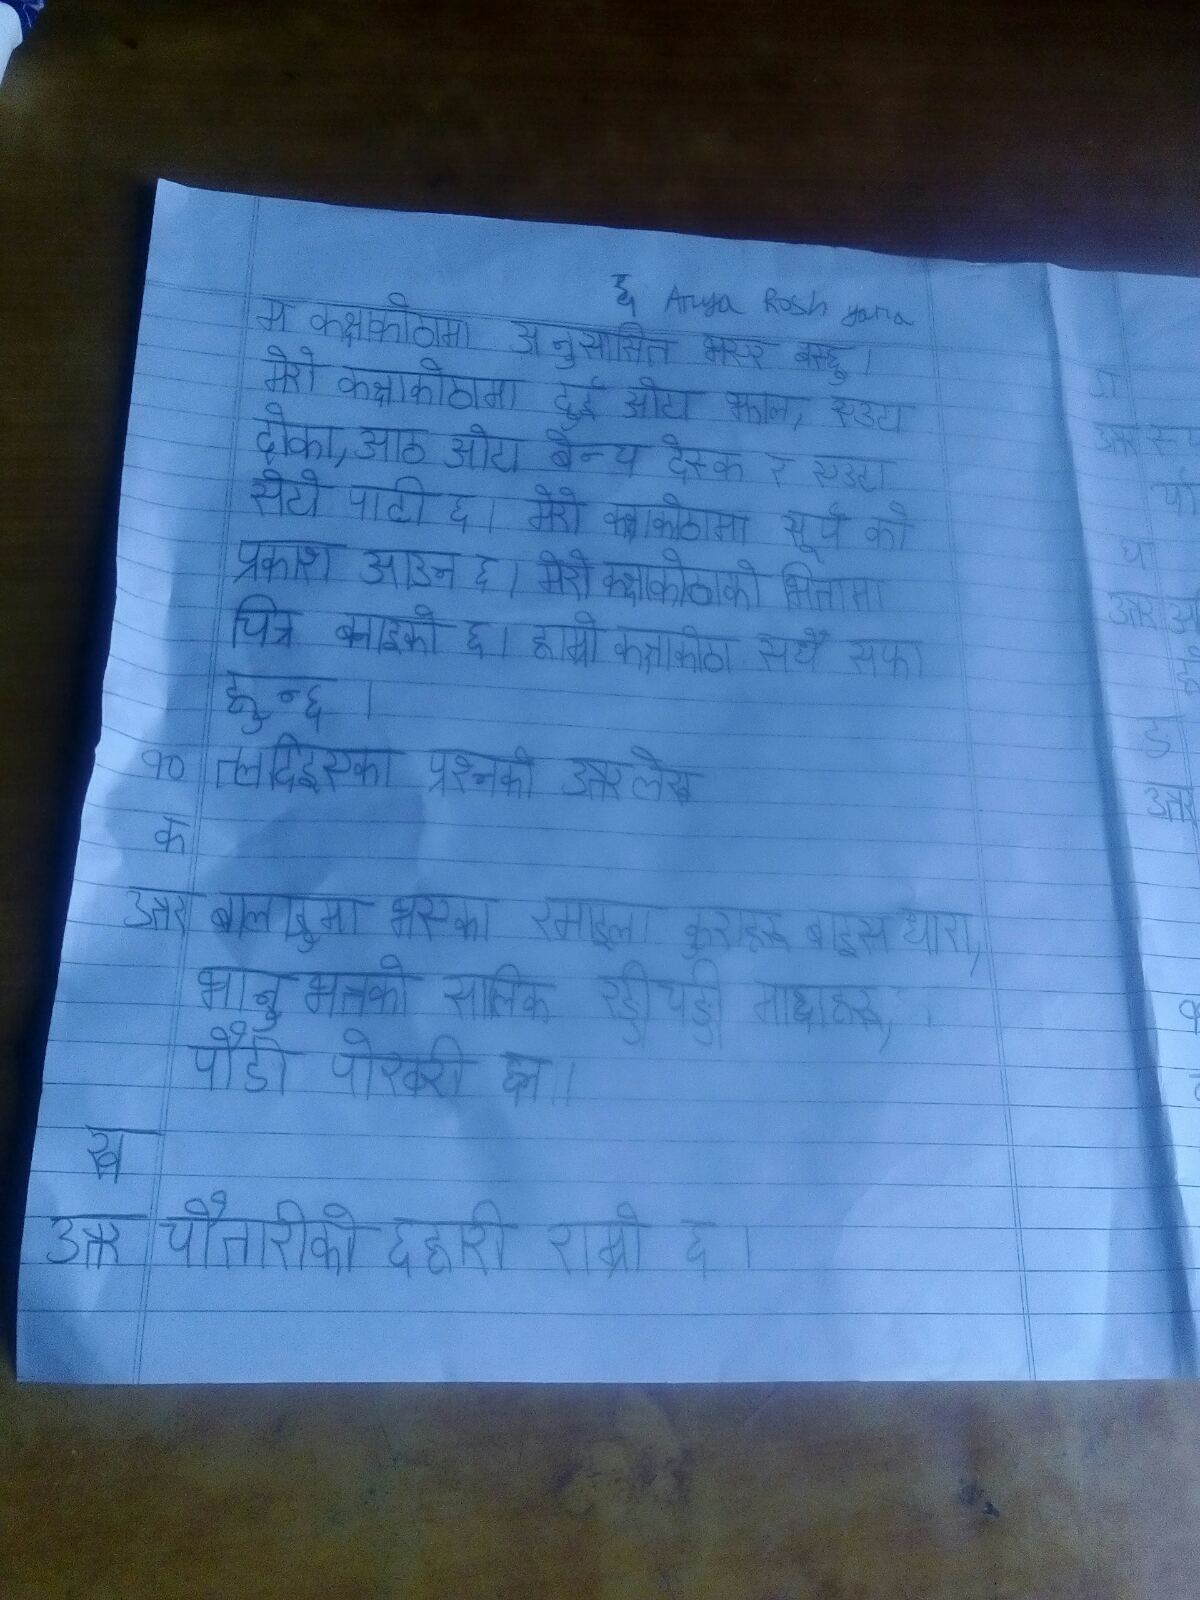 ६ Arya Rosh yana
म कक्षाकोठामा अनुसासित भएर बस्छु।
मेरो कक्षाकोठामा दुई ओटा झाल, एउटा
ढोका, आठ ओटा बेन्च देस्क र एउटा
सेटो पाटी छ। मेरो कक्षाकोठामा सूर्य को
प्रकाश आउन छ। मेरो कक्षाकोठाको भितामा
चित्र बनाइको छ। हाम्रो कक्षाकोठा सधैँ सफा
हुन्छ।
१० तलदिइएका प्रश्नको उत्तर लेख
क
उत्तर बालाजुमा भएका रमाइला कुराहरू बाइस धारा,
भानु भक्तको सालिक रङ्गीचङ्गी माछाहरू,
पौँडी पोखरी छन।
ख
उत्तर चौँतारीको छहारी राम्रो छ।
ग
घ
ङ
उत्तर